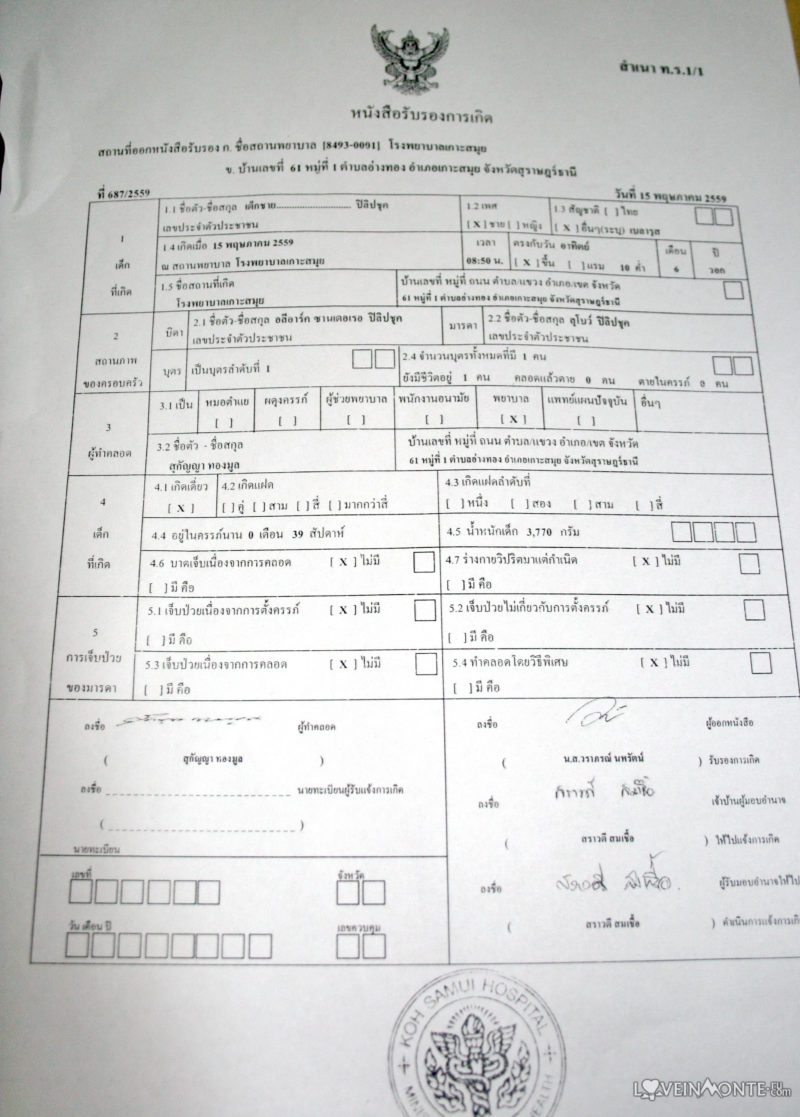 สำเนา ท.ร.1/1
หนังสือรับรองการเกิด
สถานที่ออกหนังสือรับรอง ก. ชื่อสถานพยาบาล [8493-0001] โรงพยาบาลเกาะสมุย
ข. บ้านเลขที่ 61 หมู่ที่ 1 ตำบลอ่างทอง อำเภอเกาะสมุย จังหวัดสุราษฎร์ธานี
ที่ 687/2559 วันที่ 15 พฤษภาคม 2559
1 เด็ก ที่เกิด
1.1 ชื่อตัว-ชื่อสกุล เด็กชาย.............................. ปิลิปชุค
เลขประจำตัวประชาชน
1.2 เพศ
[ X ] ชาย [ ] หญิง
1.3 สัญชาติ [ ] ไทย
[ X ] อื่นๆ(ระบุ) เบลารุส
1.4 เกิดเมื่อ 15 พฤษภาคม 2559
ณ สถานพยาบาล โรงพยาบาลเกาะสมุย
เวลา
08:50 น.
ตรงกับวัน อาทิตย์
[ X ] ขึ้น [ ] แรม 10 ค่ำ
เดือน
6
ปี
วอก
1.5 ชื่อสถานที่เกิด
โรงพยาบาลเกาะสมุย
บ้านเลขที่ หมู่ที่ ถนน ตำบล/แขวง อำเภอ/เขต จังหวัด
61 หมู่ที่ 1 ตำบลอ่างทอง อำเภอเกาะสมุย จังหวัดสุราษฎร์ธานี
2 สถานภาพ ของครอบครัว
บิดา
2.1 ชื่อตัว-ชื่อสกุล อลีอาร์ค ซานเดอเรอ ปิลิปชุค
เลขประจำตัวประชาชน
มารดา
2.2 ชื่อตัว-ชื่อสกุล ลุโบว์ ปิลิปชุค
เลขประจำตัวประชาชน
บุตร
เป็นบุตรลำดับที่ 1
2.4 จำนวนบุตรทั้งหมดที่มี 1 คน
ยังมีชีวิตอยู่ 1 คน คลอดแล้วตาย 0 คน ตายในครรภ์ 0 คน
3 ผู้ทำคลอด
3.1 เป็น
หมอตำแย [ ]
ผดุงครรภ์ [ ]
ผู้ช่วยพยาบาล [ ]
พนักงานอนามัย [ ]
พยาบาล [ X ]
แพทย์แผนปัจจุบัน [ ]
อื่นๆ
3.2 ชื่อตัว - ชื่อสกุล
สุกัญญา ทองมูล
บ้านเลขที่ หมู่ที่ ถนน ตำบล/แขวง อำเภอ/เขต จังหวัด
61 หมู่ที่ 1 ตำบลอ่างทอง อำเภอเกาะสมุย จังหวัดสุราษฎร์ธานี
4 เด็ก ที่เกิด
4.1 เกิดเดี่ยว
[ X ]
4.2 เกิดแฝด
[ ] คู่ [ ] สาม [ ] สี่ [ ] มากกว่าสี่
4.3 เกิดแฝดลำดับที่
[ ] หนึ่ง [ ] สอง [ ] สาม [ ] สี่
4.4 อยู่ในครรภ์นาน 0 เดือน 39 สัปดาห์
4.5 น้ำหนักเด็ก 3,770 กรัม
4.6 บาดเจ็บเนื่องจากการคลอด [ X ] ไม่มี
[ ] มี คือ
4.7 ร่างกายวิปริตมาแต่กำเนิด [ X ] ไม่มี
[ ] มี คือ
5 การเจ็บป่วย ของมารดา
5.1 เจ็บป่วยเนื่องจากการตั้งครรภ์ [ X ] ไม่มี
[ ] มี คือ
5.2 เจ็บป่วยไม่เกี่ยวกับการตั้งครรภ์ [ X ] ไม่มี
[ ] มี คือ
5.3 เจ็บป่วยเนื่องจากการคลอด [ X ] ไม่มี
[ ] มี คือ
5.4 ทำคลอดโดยวิธีพิเศษ [ X ] ไม่มี
[ ] มี คือ
ลงชื่อ ผู้ทำคลอด
( สุกัญญา ทองมูล )
ลงชื่อ นายทะเบียนผู้รับแจ้งการเกิด
( )
นายทะเบียน
เลขที่ จังหวัด
วัน เดือน ปี เลขควบคุม
ลงชื่อ ผู้ออกหนังสือ
( น.ส.วราภรณ์ นพรัตน์ ) รับรองการเกิด
ลงชื่อ เจ้าบ้านผู้มอบอำนาจ
( สราวดี สมเชื้อ ) ให้ไปแจ้งการเกิด
ลงชื่อ ผู้รับมอบอำนาจให้ไป
( สราวดี สมเชื้อ ) ดำเนินการแจ้งการเกิ
KOH SAMUI HOSPITAL
LOVEINMONTE.EU.com